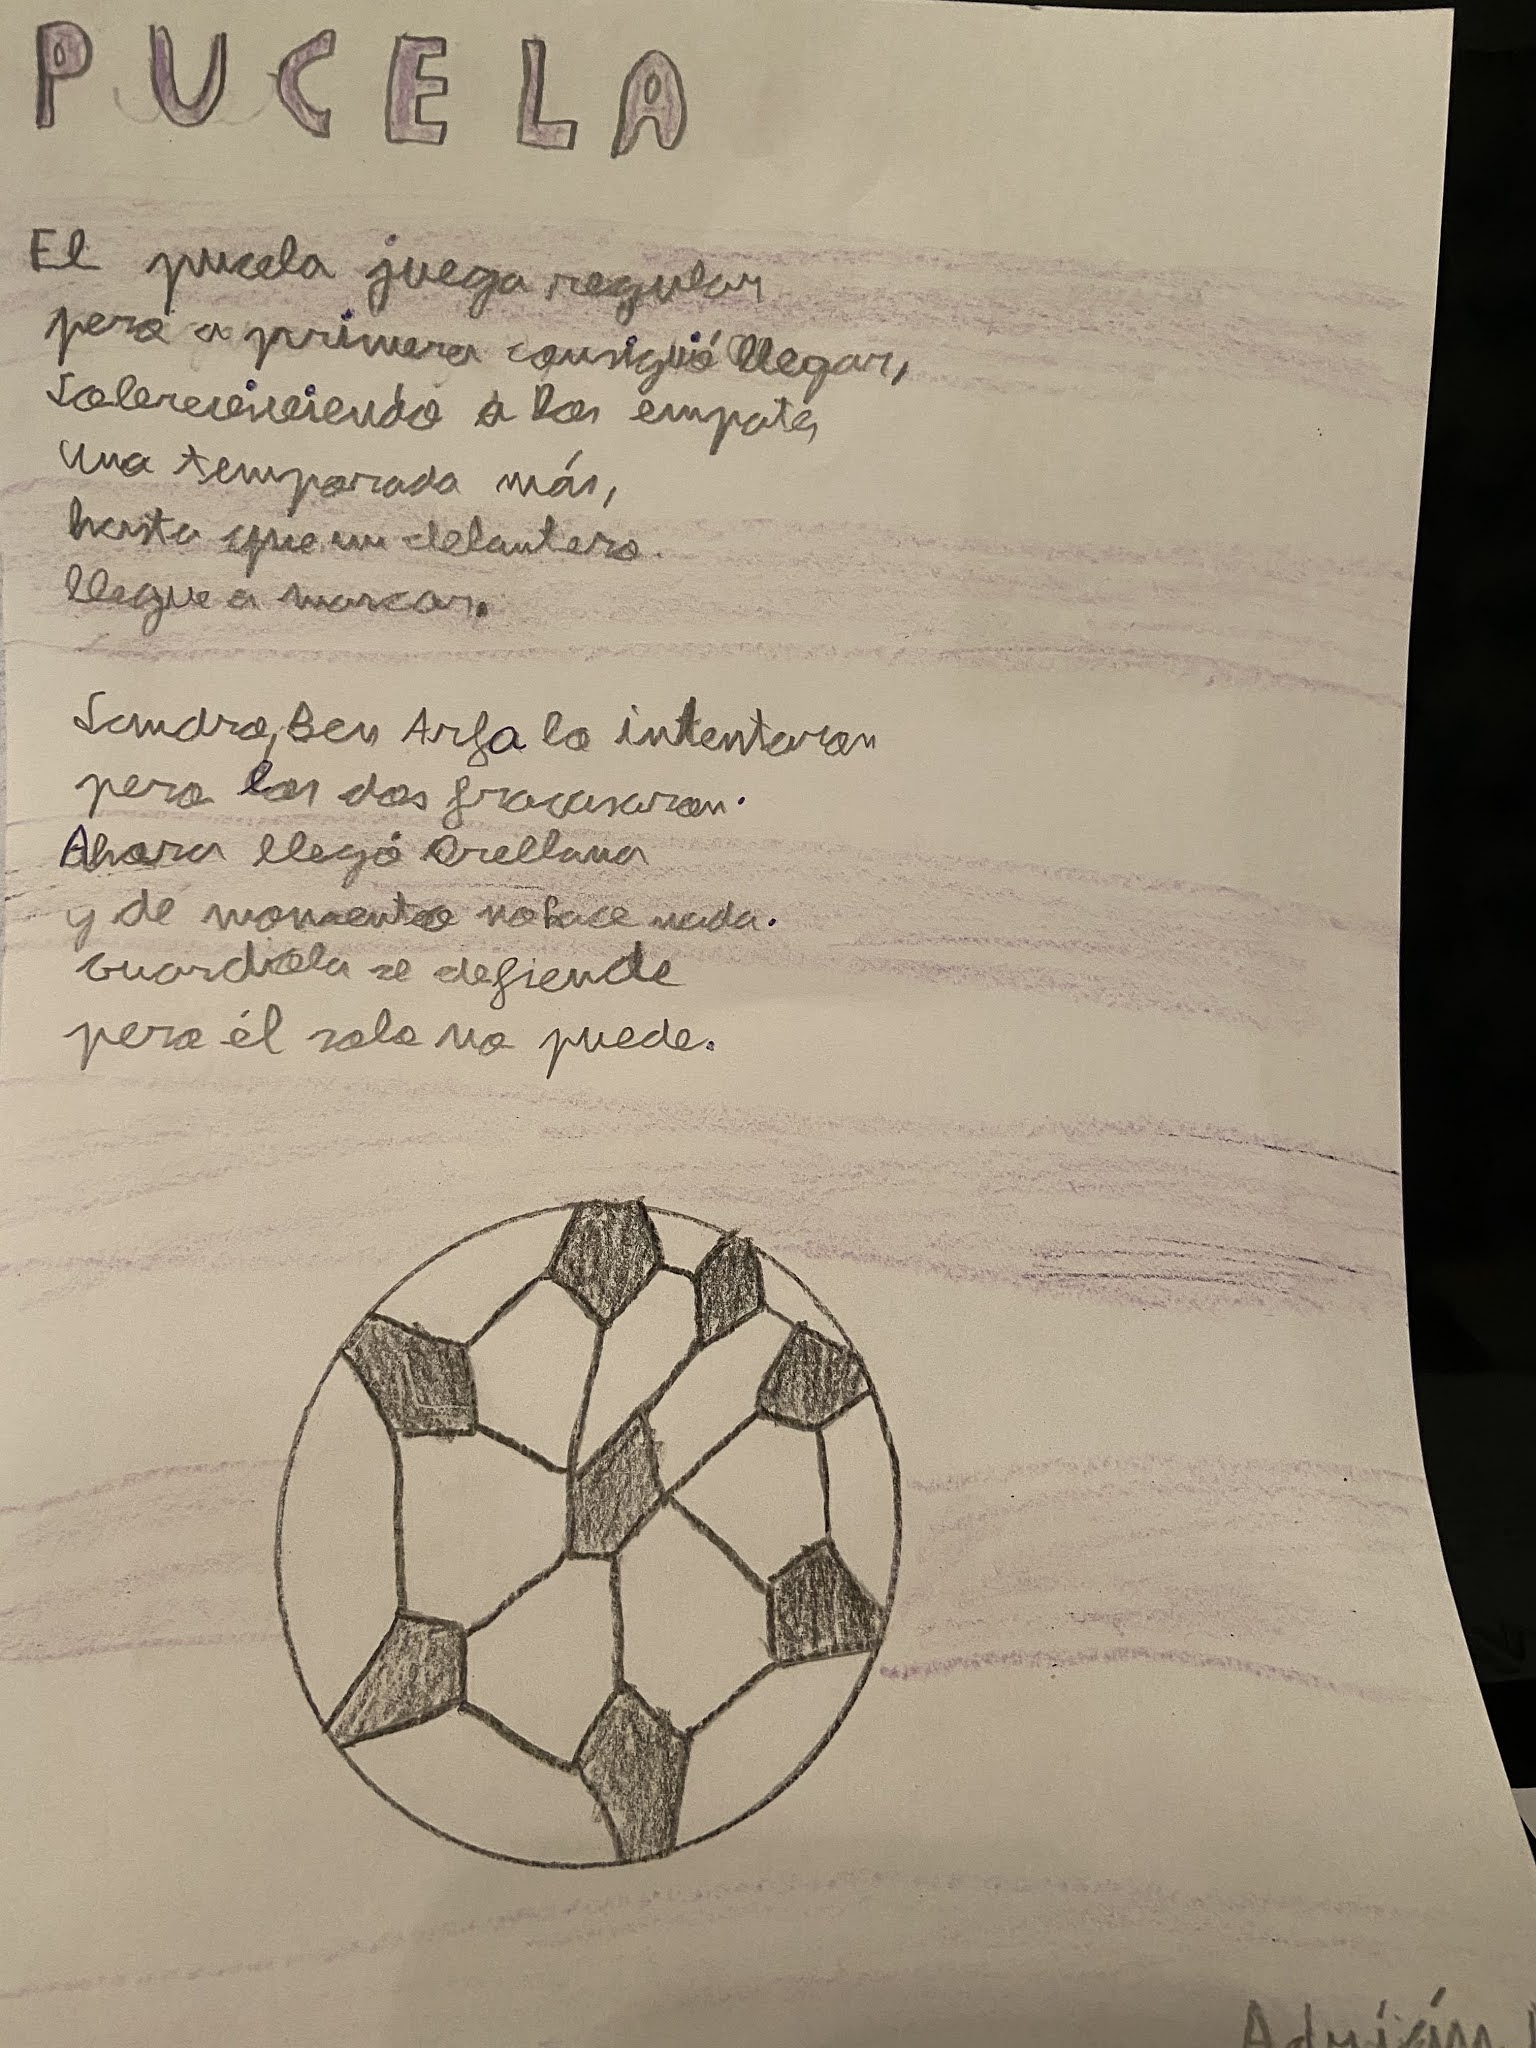 PUCELA
El pucela juega regular
pero a primera consiguió llegar,
Sobreviviendo a los empates
una temporada más,
hasta que un delantero
llegue a marcar.
Sandro, Ben Arfa lo intentaron
pero los dos fracasaron.
Ahora llegó Orellana
y de momento no hace nada.
Guardiola se defiende
pero él solo no puede.
Adrián